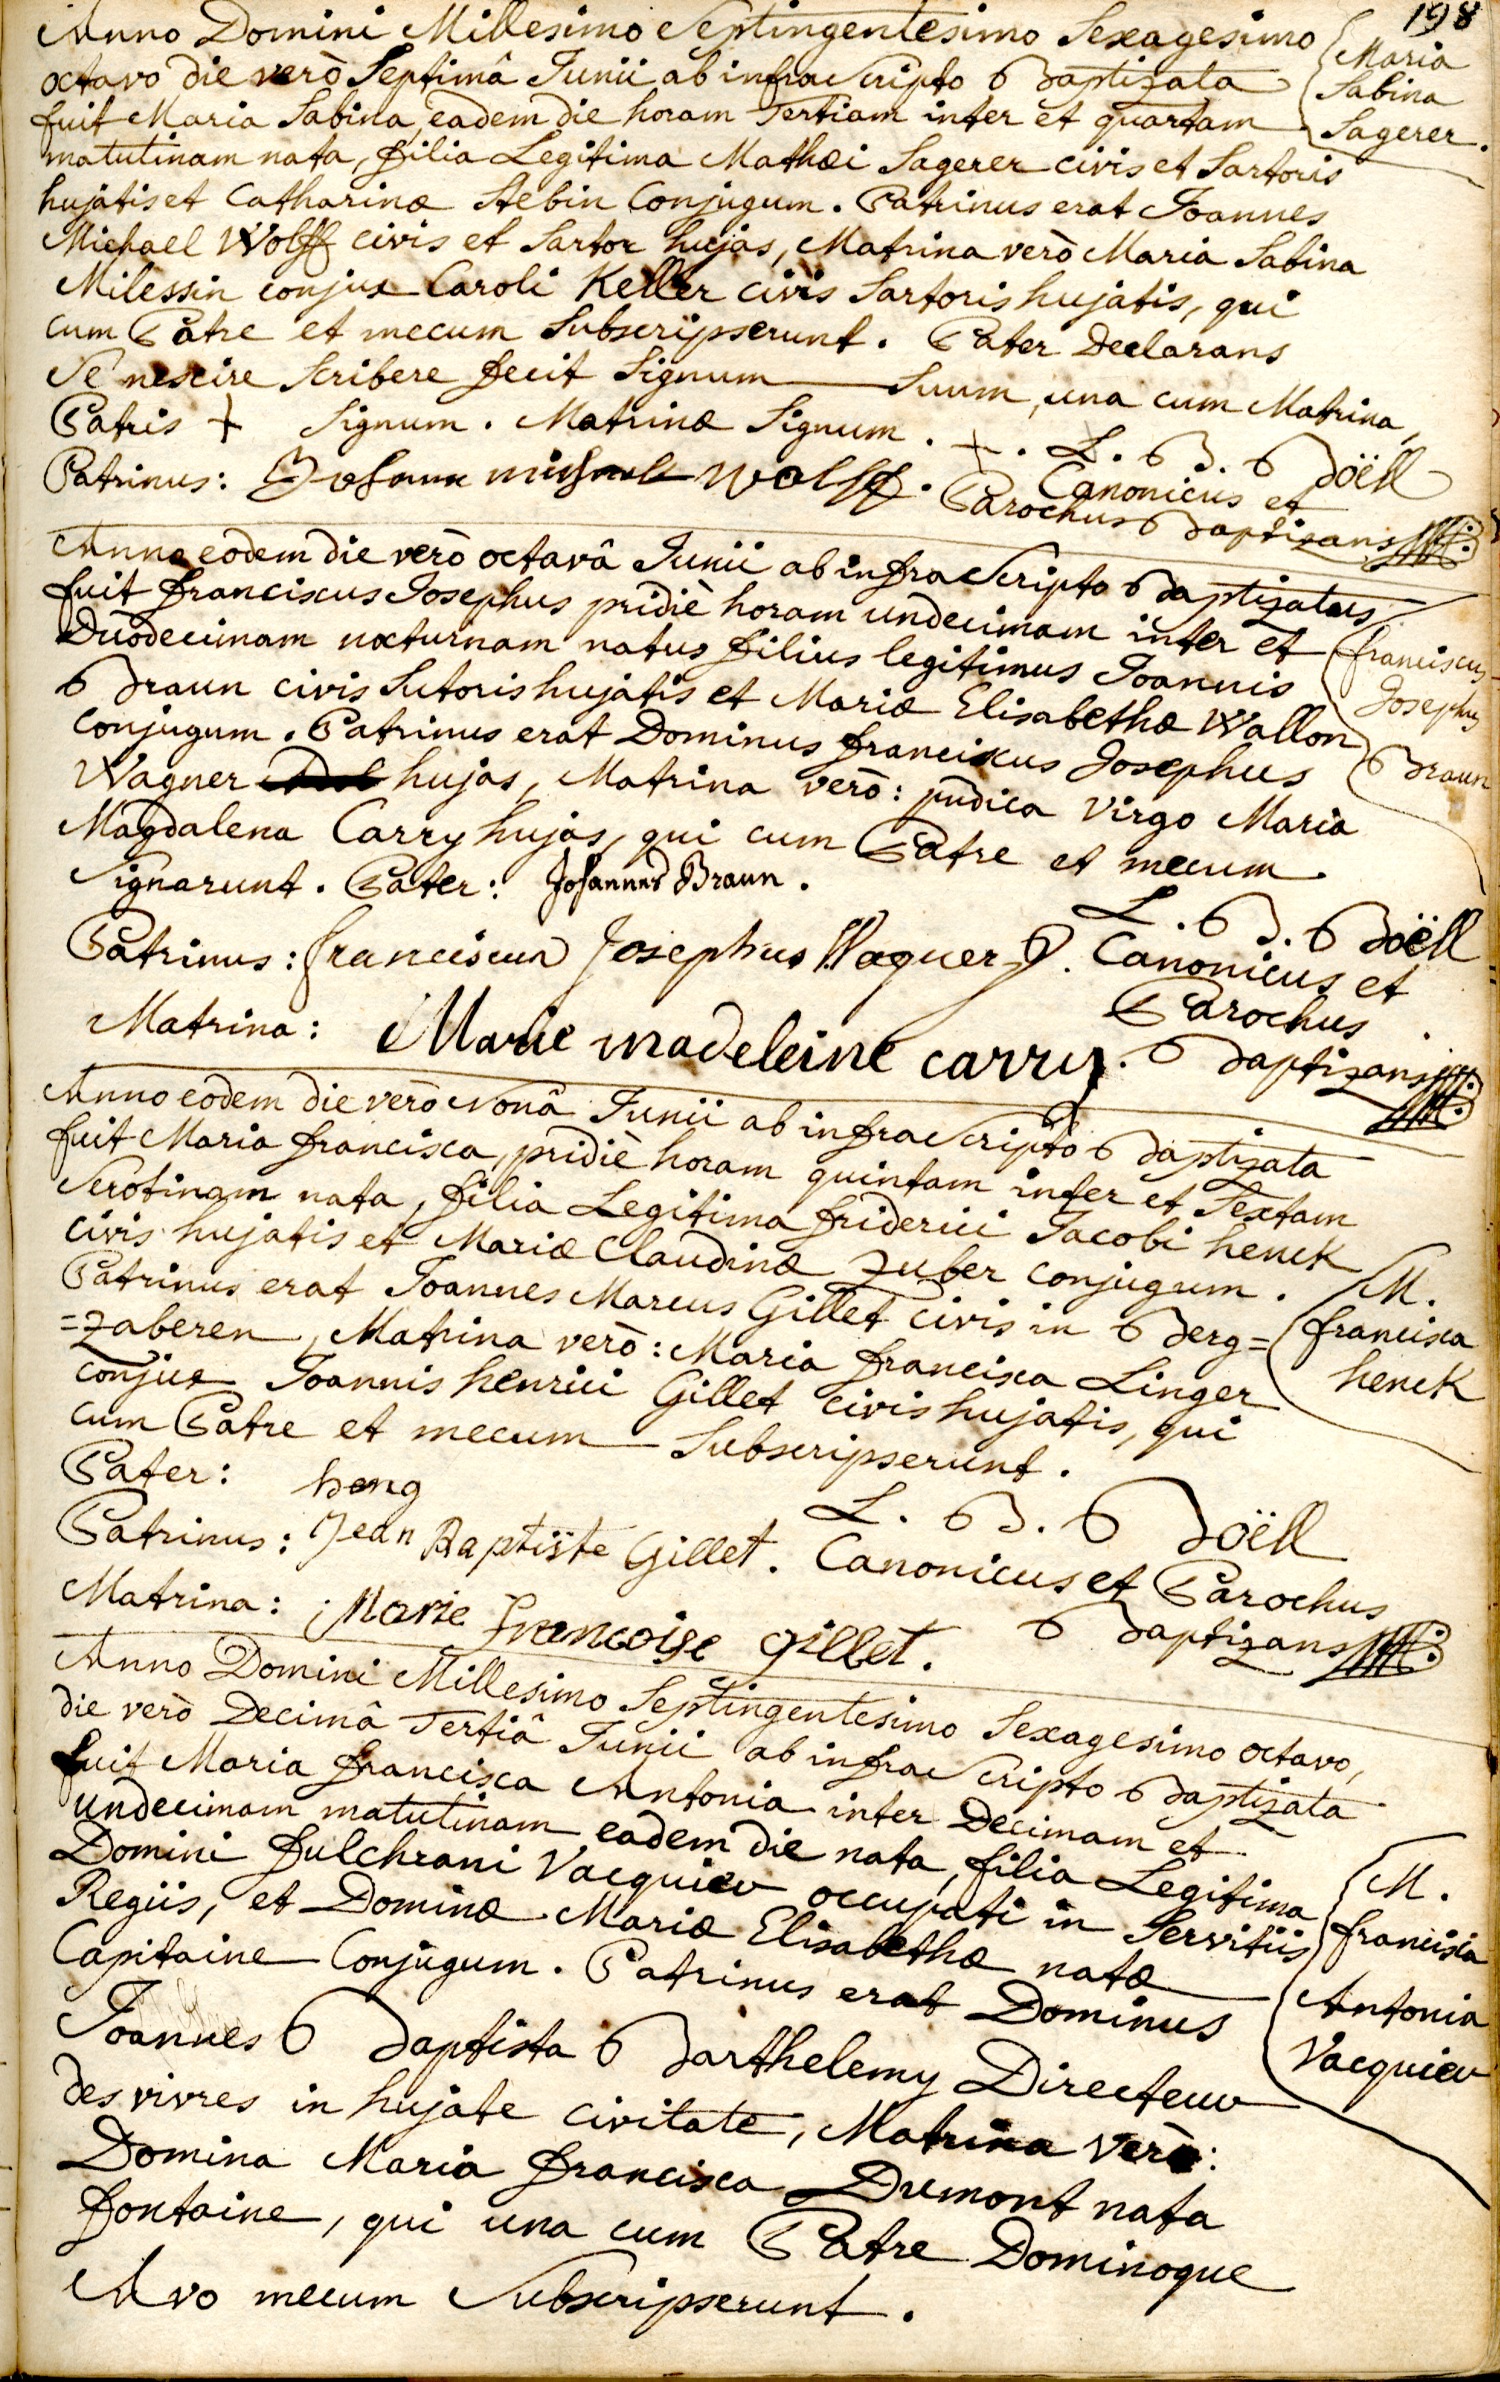 198
Anno Domini Millesimo Septingentesimo Sexagesimo
octavo die verò Septimâ Junii ab infra Scripto Baptizata
fuit Maria Sabina, eadem die horam Tertiam inter et quartam
matutinam nata, filia Legitima Mathæi Sagerer civis et Sartoris
hujatis et Catharinæ Aebin Conjugum. Patrinus erat Joannes
Michael Wolff civis et Sartor hujas, Matrina verò Maria Sabina
Milessin conjux Caroli Keller civis Sartoris hujatis, qui
cum Patre et mecum Subscripserunt. Pater Declarans
Se nescire Scribere fecit Signum Suum, una cum Matrina,
Patris + Signum. Matrinæ Signum. +.
Patrinus: Johann michael Wolff.
L. B. Boëll
Canonicus et
Parochus Baptizans
Maria
Sabina
Sagerer.
Anno eodem die verò octavâ Junii ab infra Scripto Baptizatus
fuit franciscus Josephus pridiè horam undecimam inter et
Duodecimam nocturnam natus filius legitimus Joannis
Braun civis Sutoris hujatis et Mariæ Elisabethæ Wallon
conjugum. Patrinus erat Dominus franciscus Josephus
Wagner hujas, Matrina verò: pudica virgo Maria
Magdalena Carry hujas, qui cum Patre et mecum
Signarunt. Pater: Johannes Braun.
Patrinus: franciscus Josephus Wagner
Matrina: Marie madeleine carry.
L. B. Boëll
Canonicus et
Parochus
Baptizans
franciscus
Josephus
Braun
Anno eodem die verò Nonâ Junii ab infra Scripto Baptizata
fuit Maria francisca, pridiè horam quintam inter et Sextam
Serotinam nata, filia Legitima friderici Jacobi henck
civis hujatis et Mariæ Claudinæ Zuber conjugum.
Patrinus erat Joannes Marcus Gillet civis in Berg=
=zaberen, Matrina verò: Maria francisca Linger
conjux Joannis henrici Gillet civis hujatis, qui
cum Patre et mecum Subscripserunt.
Pater: heng
Patrinus: Jean Baptiste Gillet.
Matrina: Marie Francoise gillet.
L. B. Boëll
Canonicus et Parochus
Baptizans
M.
francisca
henck
Anno Domini Millesimo Septingentesimo Sexagesimo octavo,
die verò Decimâ Tertiâ Junii ab infra Scripto Baptizata
fuit Maria francisca Antonia inter Decimam et
undecimam matutinam eadem die nata, filia Legitima
Domini fulchrani Vacquier occupati in Servitiis
Regiis, et Dominæ Mariæ Elisabethæ natæ
Capitaine Conjugum. Patrinus erat Dominus
Joannes Baptista Barthelemy Directeur
des vivres in hujate civitate, Matrina verò:
Domina Maria francisca Dumont nata
fontaine, qui una cum Patre Dominoque
Avo mecum Subscripserunt.
M.
francisca
Antonia
Vacquier